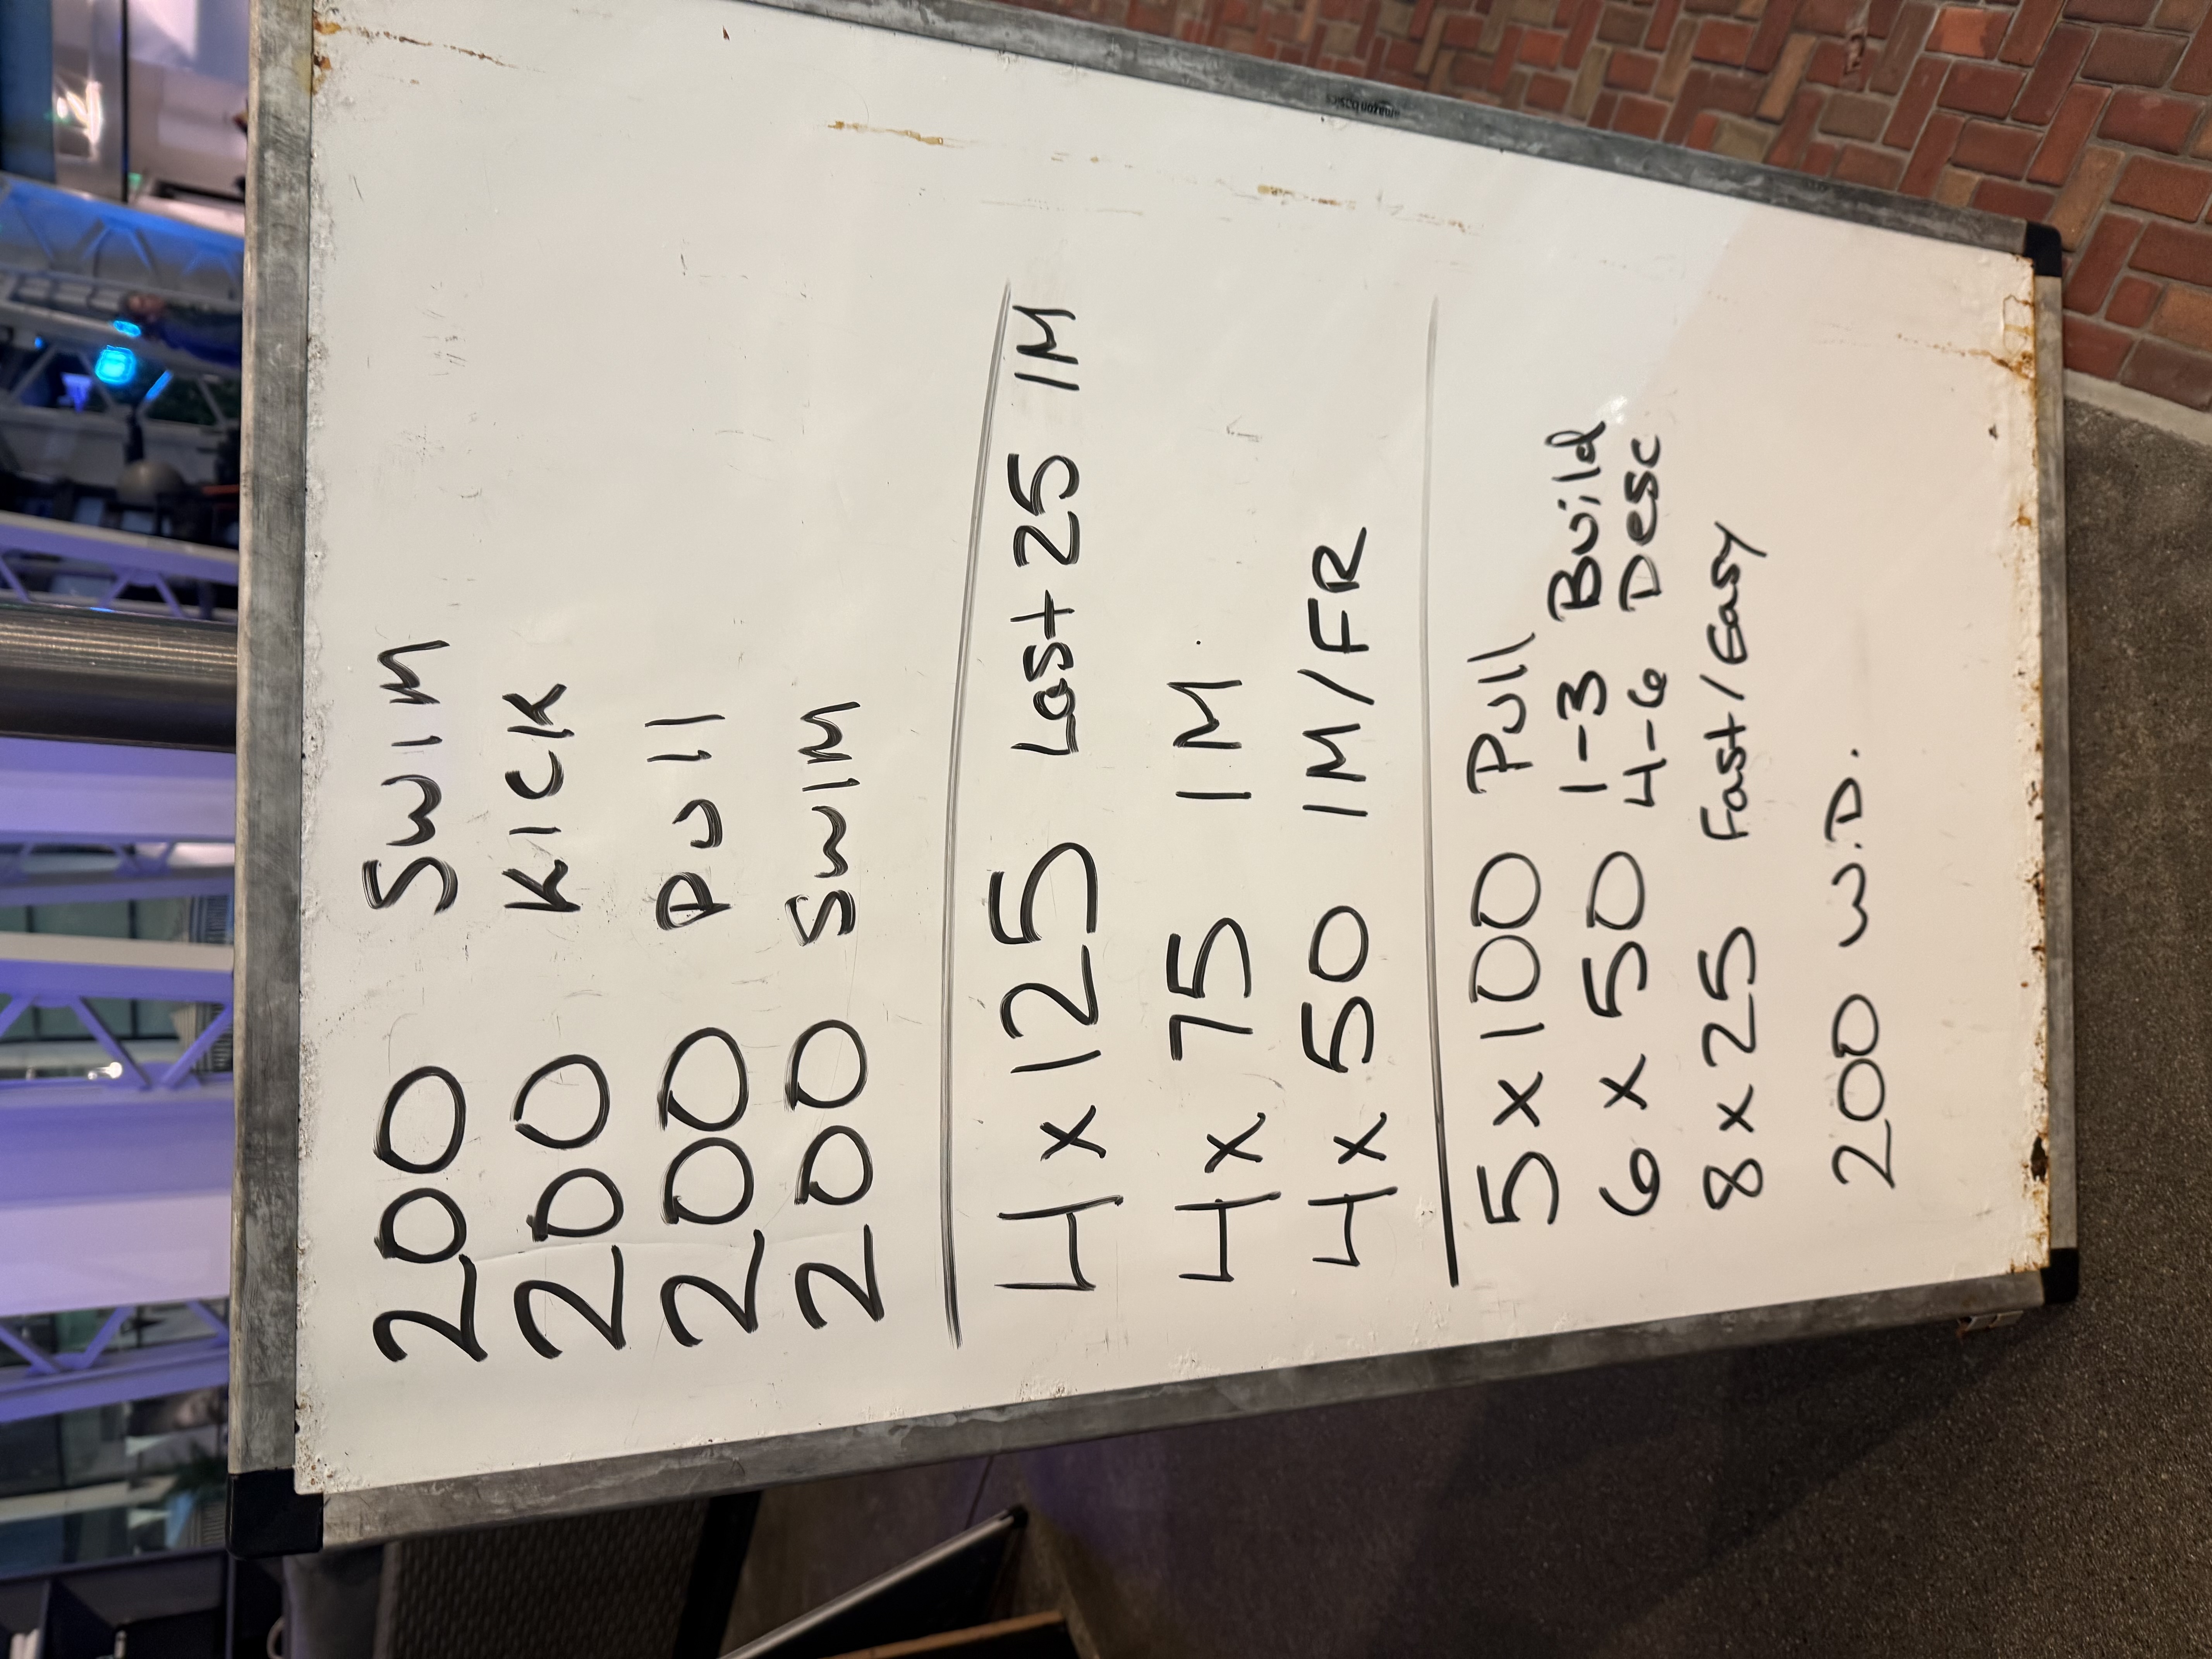 200 SWIM
200 KICK
200 Pull
200 SWIM
4 x 125 Last 25 IM
4 x 75 IM
4 x 50 IM/FR
5 x 100 Pull
6 x 50 1-3 Build
4-6 Desc
8 x 25 Fast/Easy
200 W.D.
amazon basics